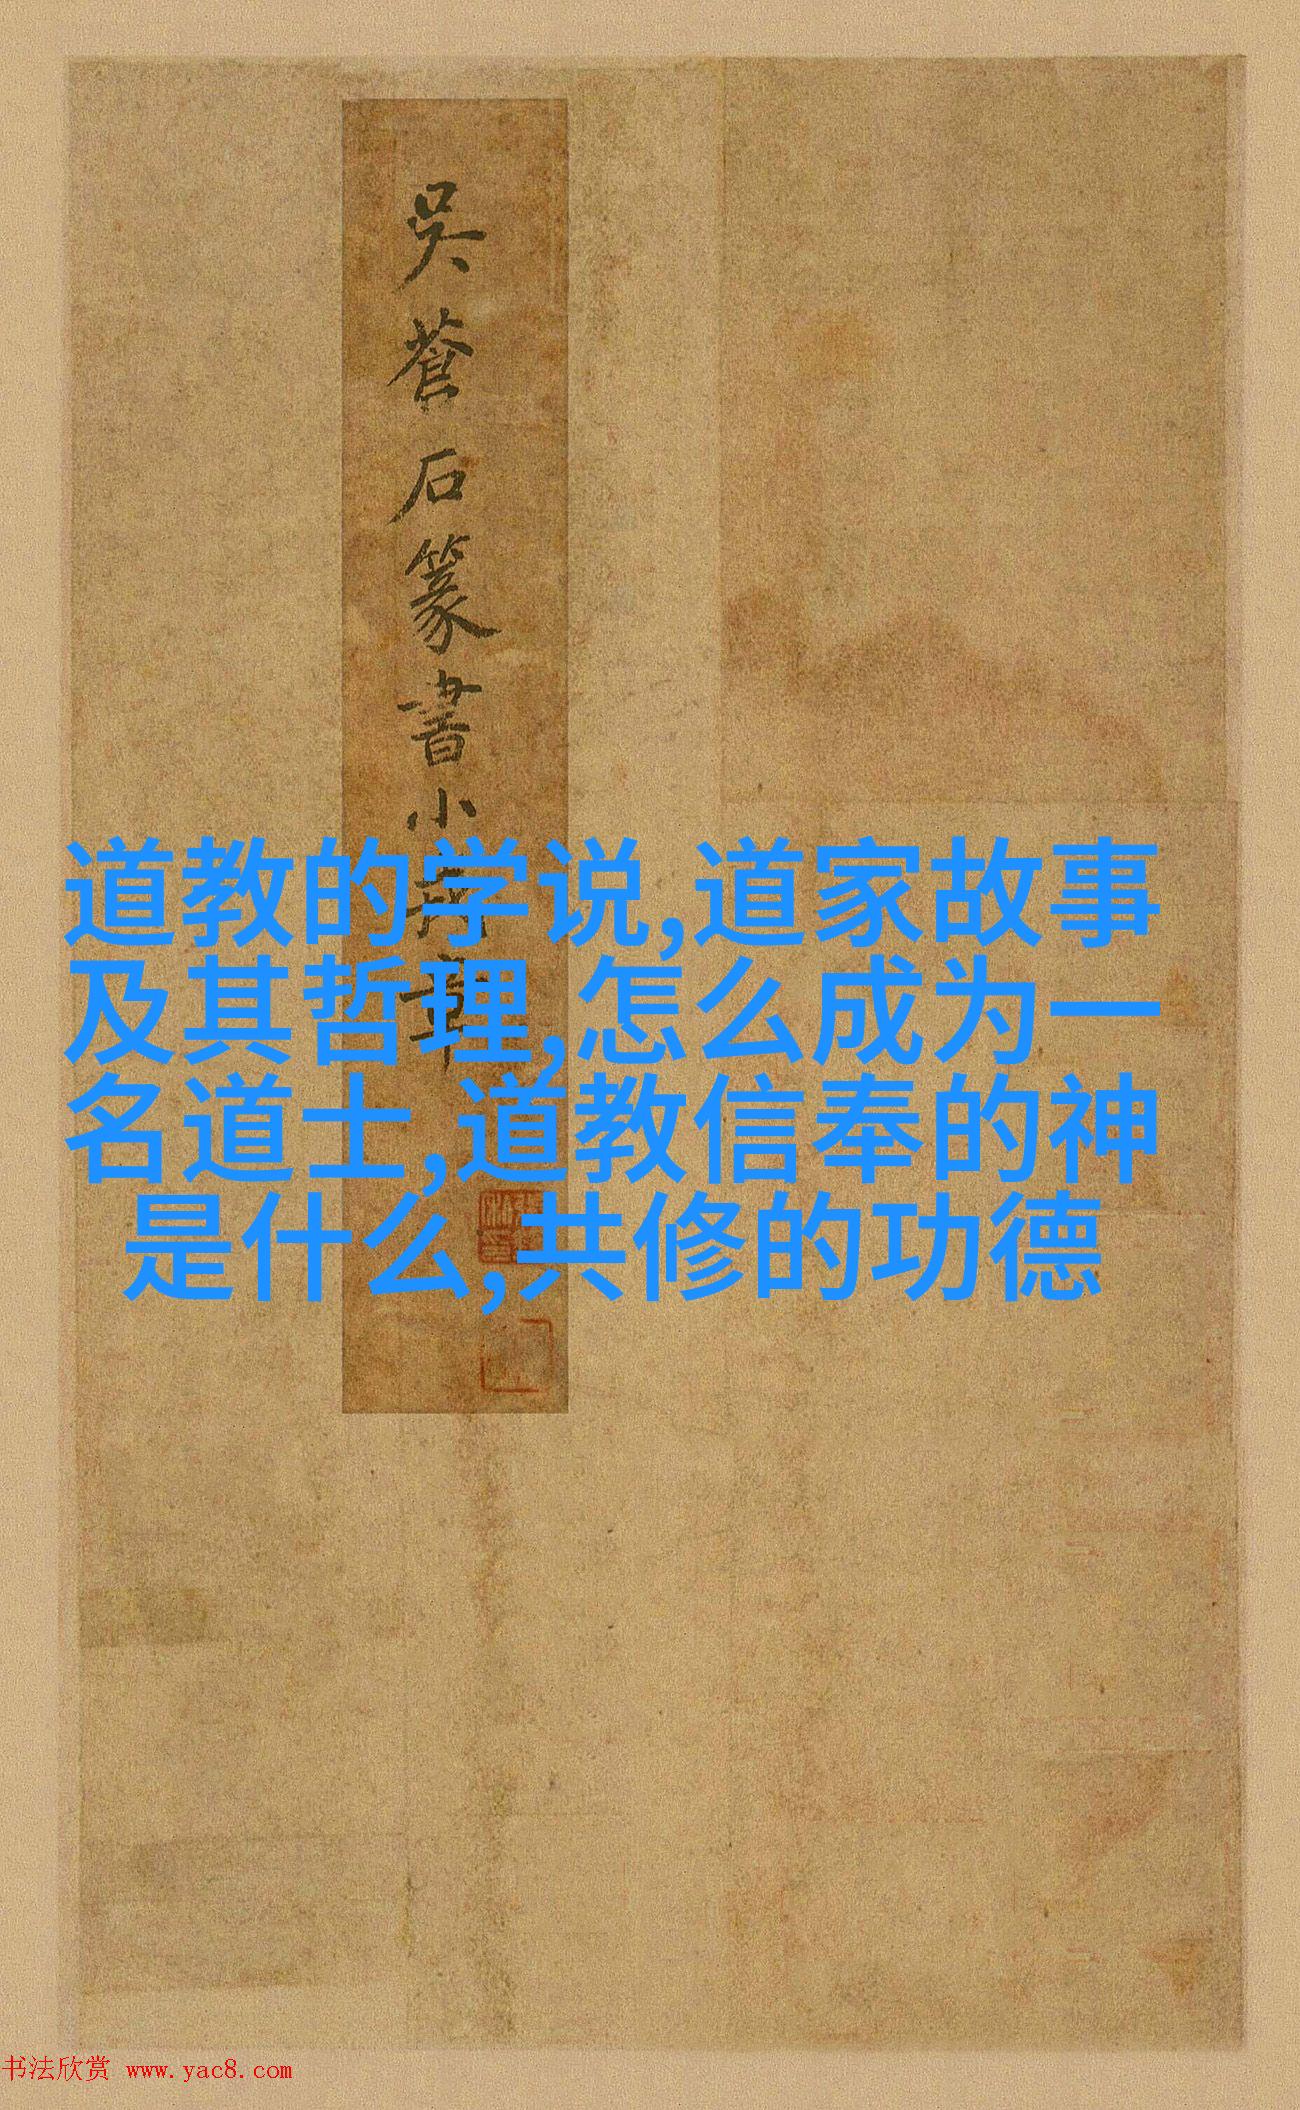 吳蒼石篆書小冊
道教的学说,道家故事
及其哲理,怎么成为一
名道士,道教信奉的神
是什么,共修的功德
书法欣赏 www.yac8.com